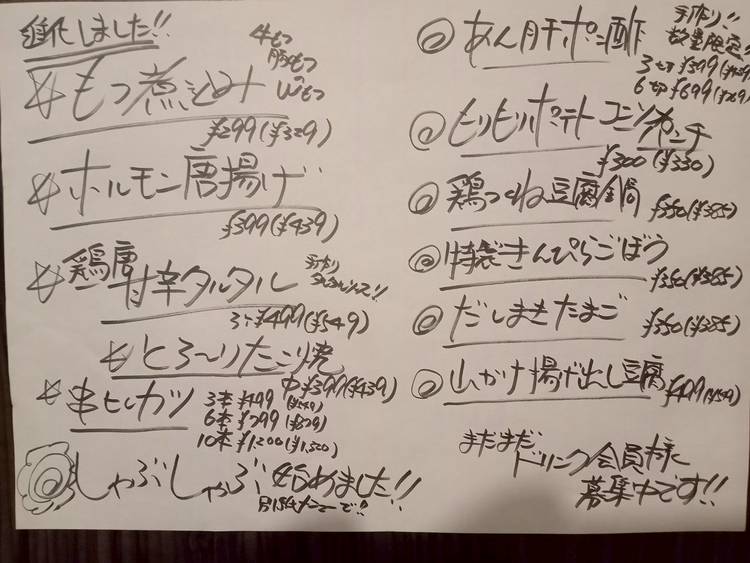 進化しました!!
☆もつ煮込み 牛もつ 豚もつ Wもつ
¥299(¥329)
☆ホルモン唐揚げ
¥399(¥439)
☆鶏唐甘辛タルタル 手作り
3ケ¥499(¥549)
☆とろ〜りたこ焼
¥399(¥439)
☆串ヒレカツ 3本¥499(¥549)
6本¥799(¥879)
10本¥1,200(¥1,320)
しゃぶしゃぶ始めました!!
別紙メニューで!!
◎あん肝ポン酢 手作り!! 数量限定
3切¥399(¥439)
6切¥699(¥769)
◎もりもりポテトコーンパンチ
¥300(¥330)
◎鶏つくね豆腐鍋 ¥350(¥385)
◎特製きんぴらごぼう
¥350(¥385)
◎だしまきたまご
¥350(¥385)
◎山かけ揚げ出し豆腐
¥499(¥549)
まだまだ
ドリンク会員様
募集中です!!